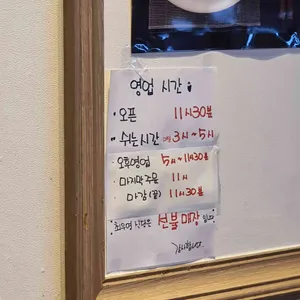 영업 시간
· 오픈 11시30분
· 쉬는시간 3시~5시
· 오후영업 5시~11시30분
· 마지막 주문 11시
· 마감(끝) 11시30분
본불 매장
감사합니다